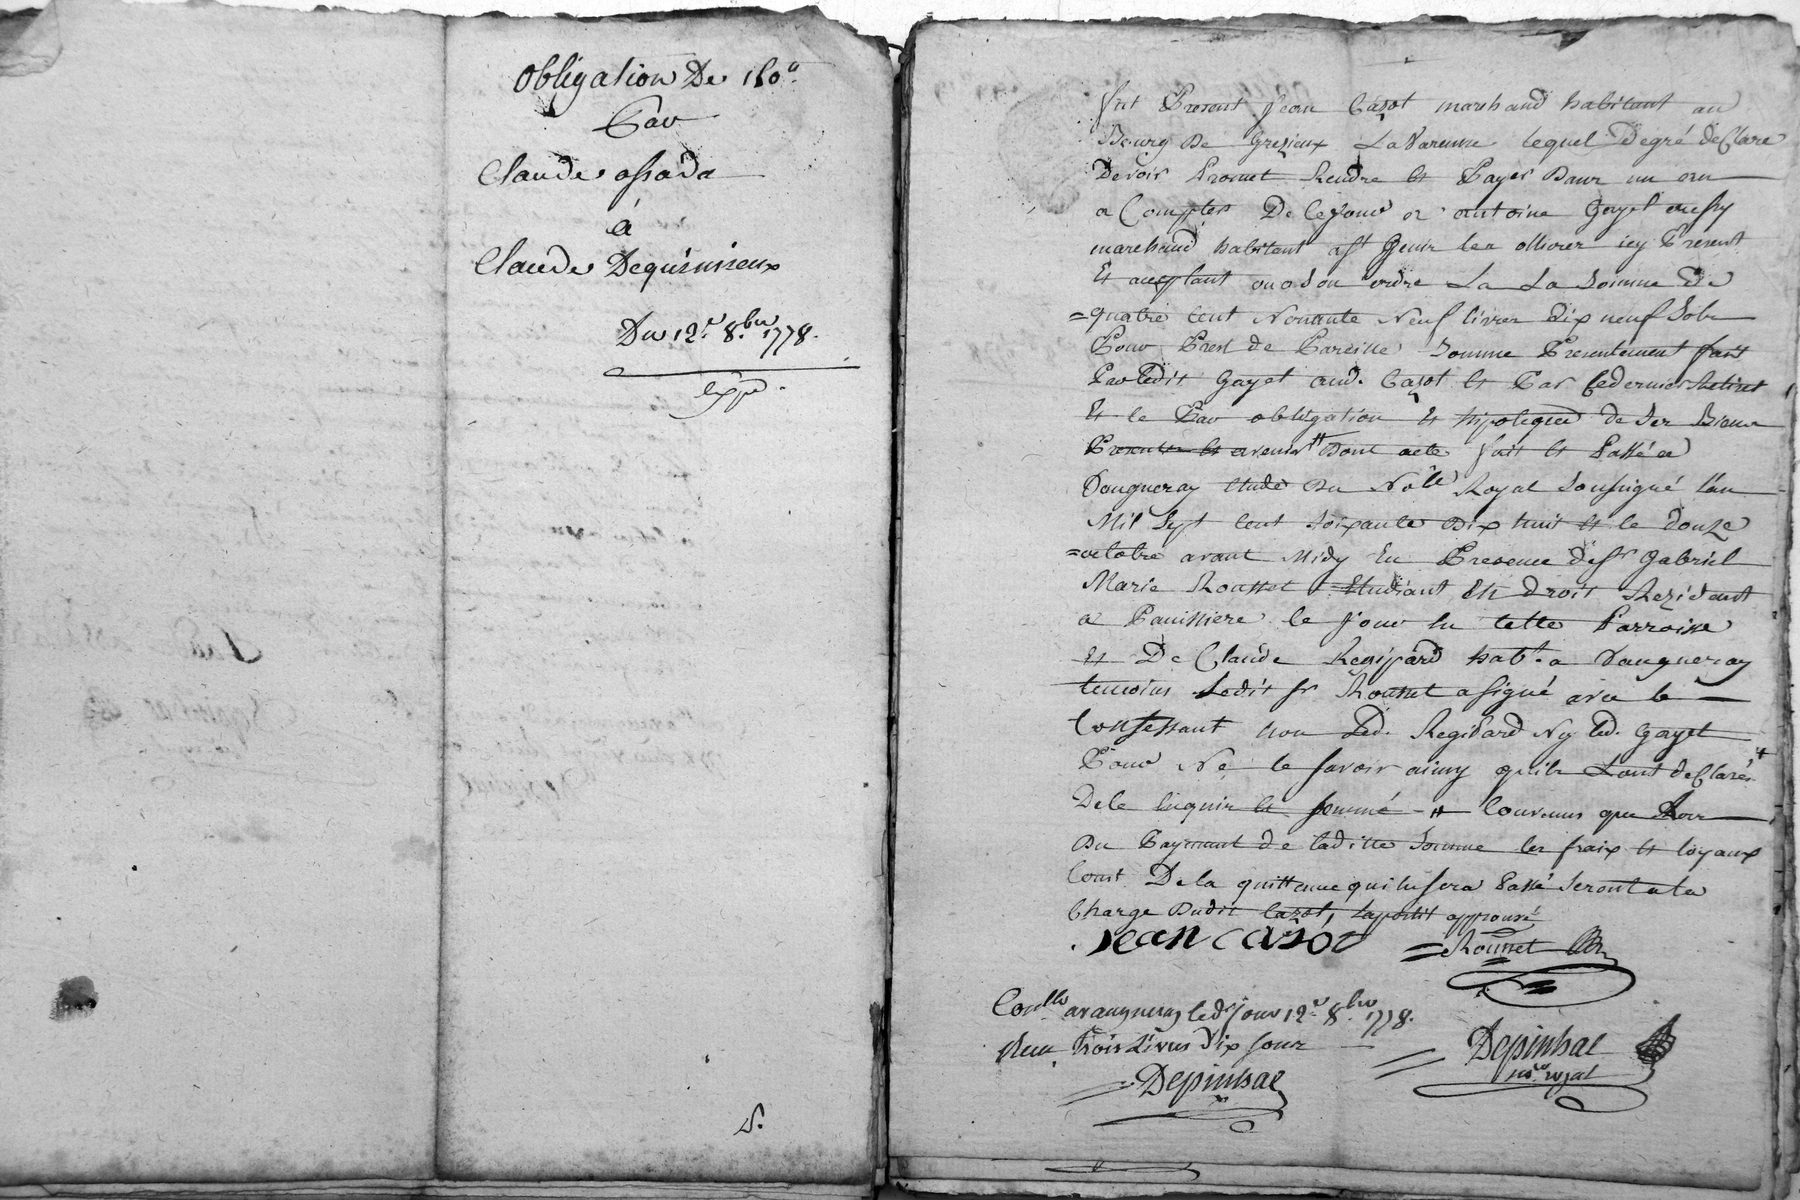 Obligation De 150ˡ
Par
Claude assada
á
Claude Dequirinieux
Du 12ᵉ 8bre 1778.
expᵉ.
S.
fut Present Jean Cazot marchand habitant au
Bourg De Grezieux LaVarenne lequel Degré declare
Devoir Promet Rendre et Payer Dans un an
a Compter De Cejour a antoine Gayet aussy
marchand habitant a st Genis les ollieres icy Present
Et acceptant ou a son ordre La La Somme De
=quatre Cent Nonante Neuf livres dix neuf Sols
Pour Prest de Pareille Somme Presentement fait
Par ledit Gayet aud. Cazot et Par ce dernier Retiré
Et ce Par obligation et hipoteque de Ses Biens
Presents et avenir # Dont acte fait et Passé a
Vaugneray Etude Du No.re Royal Soussigné L'an
Mil Sept Cent Soixante Dix huit et le Douze
=octobre avant Midy En Presence de sr Gabriel
Marie Rousset Etudiant En Droit Rezidant
a Panissiere ce jour En cette Parroisse
Et De Claude Regipard habt. a Vaugneray
temoins Ledit sr Rousset a signé avec le
Confessant non Led. Regipard Ny led. Gayet
Pour Ne le savoir ainsy qu'ils L'ont declaré +
De ce Enquis et sommé # Convenus que Lors
Du Payement de laditte Somme les fraix et loyaux
Cout De la quittance qui en sera Passé Seront a la
Charge Dudit Cazot, L'apostil approuvé
Jean cazot =Rousset
Con.lle a vaugneray led. jour 12ᵉ 8bre 1778.
Reçu trois Livres Dix sous
Depinhac
Depinhac
no.re royal